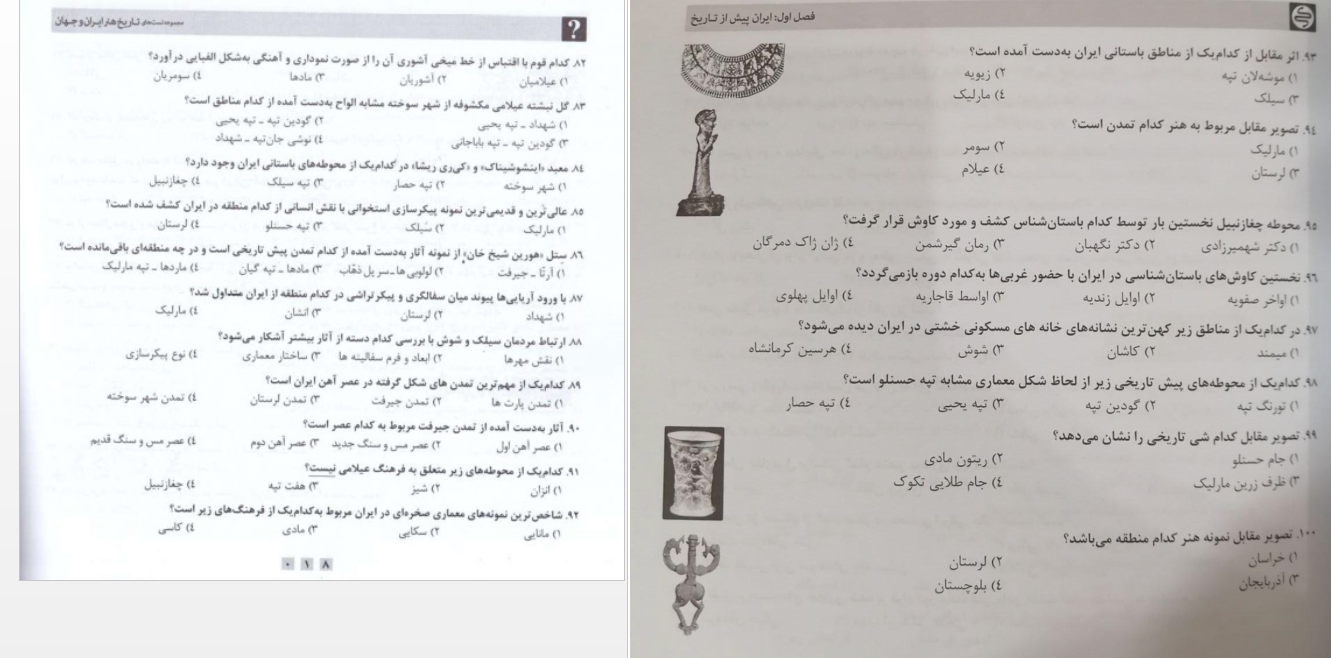 فصل اول: ایران پیش از تاریخ
۹۳. اثر مقابل از کدام‌یک از مناطق باستانی ایران به‌دست آمده است؟
۱) موشه‌لان تپه ۲) زیویه
۳) سیلک ۴) مارلیک
۹۴. تصویر مقابل مربوط به هنر کدام تمدن است؟
۱) مارلیک ۲) سومر
۳) لرستان ۴) عیلام
۹۵. محوطه چغازنبیل نخستین بار توسط کدام باستان‌شناس کشف و مورد کاوش قرار گرفت؟
۱) دکتر شهمیرزادی ۲) دکتر نگهبان ۳) رمان گیرشمن ۴) ژان ژاک دمرگان
۹۶. نخستین کاوش‌های باستان‌شناسی در ایران با حضور غربی‌ها به‌کدام دوره بازمی‌گردد؟
۱) اواخر صفویه ۲) اوایل زندیه ۳) اواسط قاجاریه ۴) اوایل پهلوی
۹۷. در کدام‌یک از مناطق زیر کهن‌ترین نشانه‌های خانه های مسکونی خشتی در ایران دیده می‌شود؟
۱) میمند ۲) کاشان ۳) شوش ۴) هرسین کرمانشاه
۹۸. کدام‌یک از محوطه‌های پیش تاریخی زیر از لحاظ شکل معماری مشابه تپه حسنلو است؟
۱) تورنگ تپه ۲) گودین تپه ۳) تپه یحیی ۴) تپه حصار
۹۹. تصویر مقابل کدام شی تاریخی را نشان می‌دهد؟
۱) جام حسنلو ۲) ریتون مادی
۳) ظرف زرین مارلیک ۴) جام طلایی تکوک
۱۰۰. تصویر مقابل نمونه هنر کدام منطقه می‌باشد؟
۱) خراسان ۲) لرستان
۳) آذربایجان ۴) بلوچستان
مجموعه تست‌های تاریخ هنر ایران و جهان
?
۸۲. کدام قوم با اقتباس از خط میخی آشوری آن را از صورت نموداری و آهنگی به‌شکل الفبایی درآورد؟
۱) عیلامیان ۲) آشوریان ۳) مادها ۴) سومریان
۸۳. گل نبشته عیلامی مکشوفه از شهر سوخته مشابه الواح به‌دست آمده از کدام مناطق است؟
۱) شهداد ـ تپه یحیی ۲) گودین تپه ـ تپه یحیی
۳) گودین تپه ـ تپه باباجانی ۴) نوشی جان‌تپه ـ شهداد
۸۴. معبد «اینشوشیناک» و «کی‌ری ریشا» در کدام‌یک از محوطه‌های باستانی ایران وجود دارد؟
۱) شهر سوخته ۲) تپه حصار ۳) تپه سیلک ۴) چغازنبیل
۸۵. عالی‌ترین و قدیمی‌ترین نمونه پیکرسازی استخوانی با نقش انسانی از کدام منطقه در ایران کشف شده است؟
۱) مارلیک ۲) سیلک ۳) تپه حسنلو ۴) لرستان
۸۶. ستل «هورین شیخ خان» از نمونه آثار به‌دست آمده از کدام تمدن پیش تاریخی است و در چه منطقه‌ای باقی‌مانده است؟
۱) آرتا ـ جیرفت ۲) لولوبی هاـ سر پل ذهاب ۳) مادها ـ تپه گیان ۴) ماردها ـ تپه مارلیک
۸۷. با ورود آریایی‌ها پیوند میان سفالگری و پیکرتراشی در کدام منطقه از ایران متداول شد؟
۱) شهداد ۲) لرستان ۳) انشان ۴) مارلیک
۸۸. ارتباط مردمان سیلک و شوش با بررسی کدام دسته از آثار بیشتر آشکار می‌شود؟
۱) نقش مهرها ۲) ابعاد و فرم سفالینه ها ۳) ساختار معماری ۴) نوع پیکرسازی
۸۹. کدام‌یک از مهم‌ترین تمدن های شکل گرفته در عصر آهن ایران است؟
۱) تمدن پارت ها ۲) تمدن جیرفت ۳) تمدن لرستان ۴) تمدن شهر سوخته
۹۰. آثار به‌دست آمده از تمدن جیرفت مربوط به کدام عصر است؟
۱) عصر آهن اول ۲) عصر مس و سنگ جدید ۳) عصر آهن دوم ۴) عصر مس و سنگ قدیم
۹۱. کدام‌یک از محوطه‌های زیر متعلق به فرهنگ عیلامی نیست؟
۱) انزان ۲) شیز ۳) هفت تپه ۴) چغازنبیل
۹۲. شاخص‌ترین نمونه‌های معماری صخره‌ای در ایران مربوط به‌کدام‌یک از فرهنگ‌های زیر است؟
۱) مانایی ۲) سکایی ۳) مادی ۴) کاسی
۰۱۸